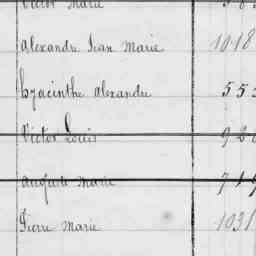 Victor Marie
Alexandre Jean Marie 1018
Hyacinthe Alexandre 55
Victor Louis 92
Auguste Marie 71
Pierre Marie 1031